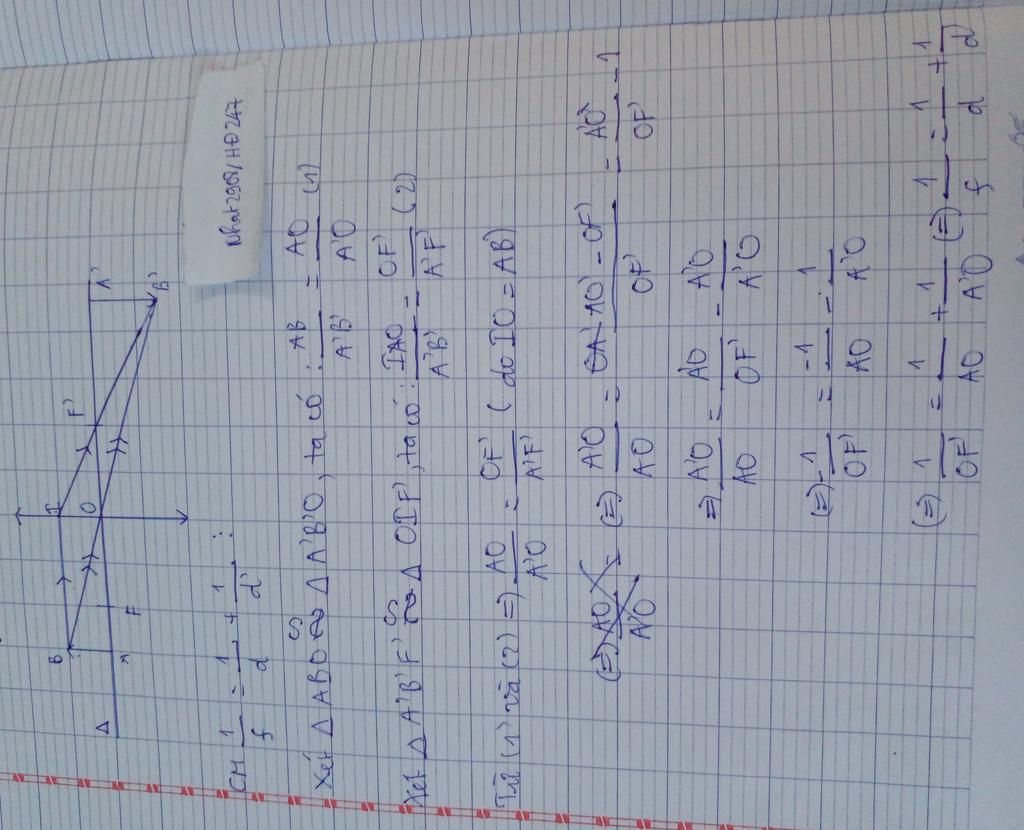 B I
Δ A F O F' A'
B'
Nhat2908/HĐ247
CM 1/f = 1/d + 1/d' :
Xét Δ ABO ∽ Δ A'B'O, ta có : AB/A'B' = AO/A'O (1)
Xét Δ A'B'F' ∽ Δ OIF', ta có : IO/A'B' = OF'/A'F' (2)
Từ (1) và (2) => AO/A'O = OF'/A'F' (do IO = AB)
(=) A'O/AO = A'O - OF'/OF' = A'O/OF' - 1
=> A'O/AO = A'O/OF' - A'O/A'O
(=) -1/OF' = -1/AO - 1/A'O
(=) 1/OF' = 1/AO + 1/A'O (=) 1/f = 1/d + 1/d'